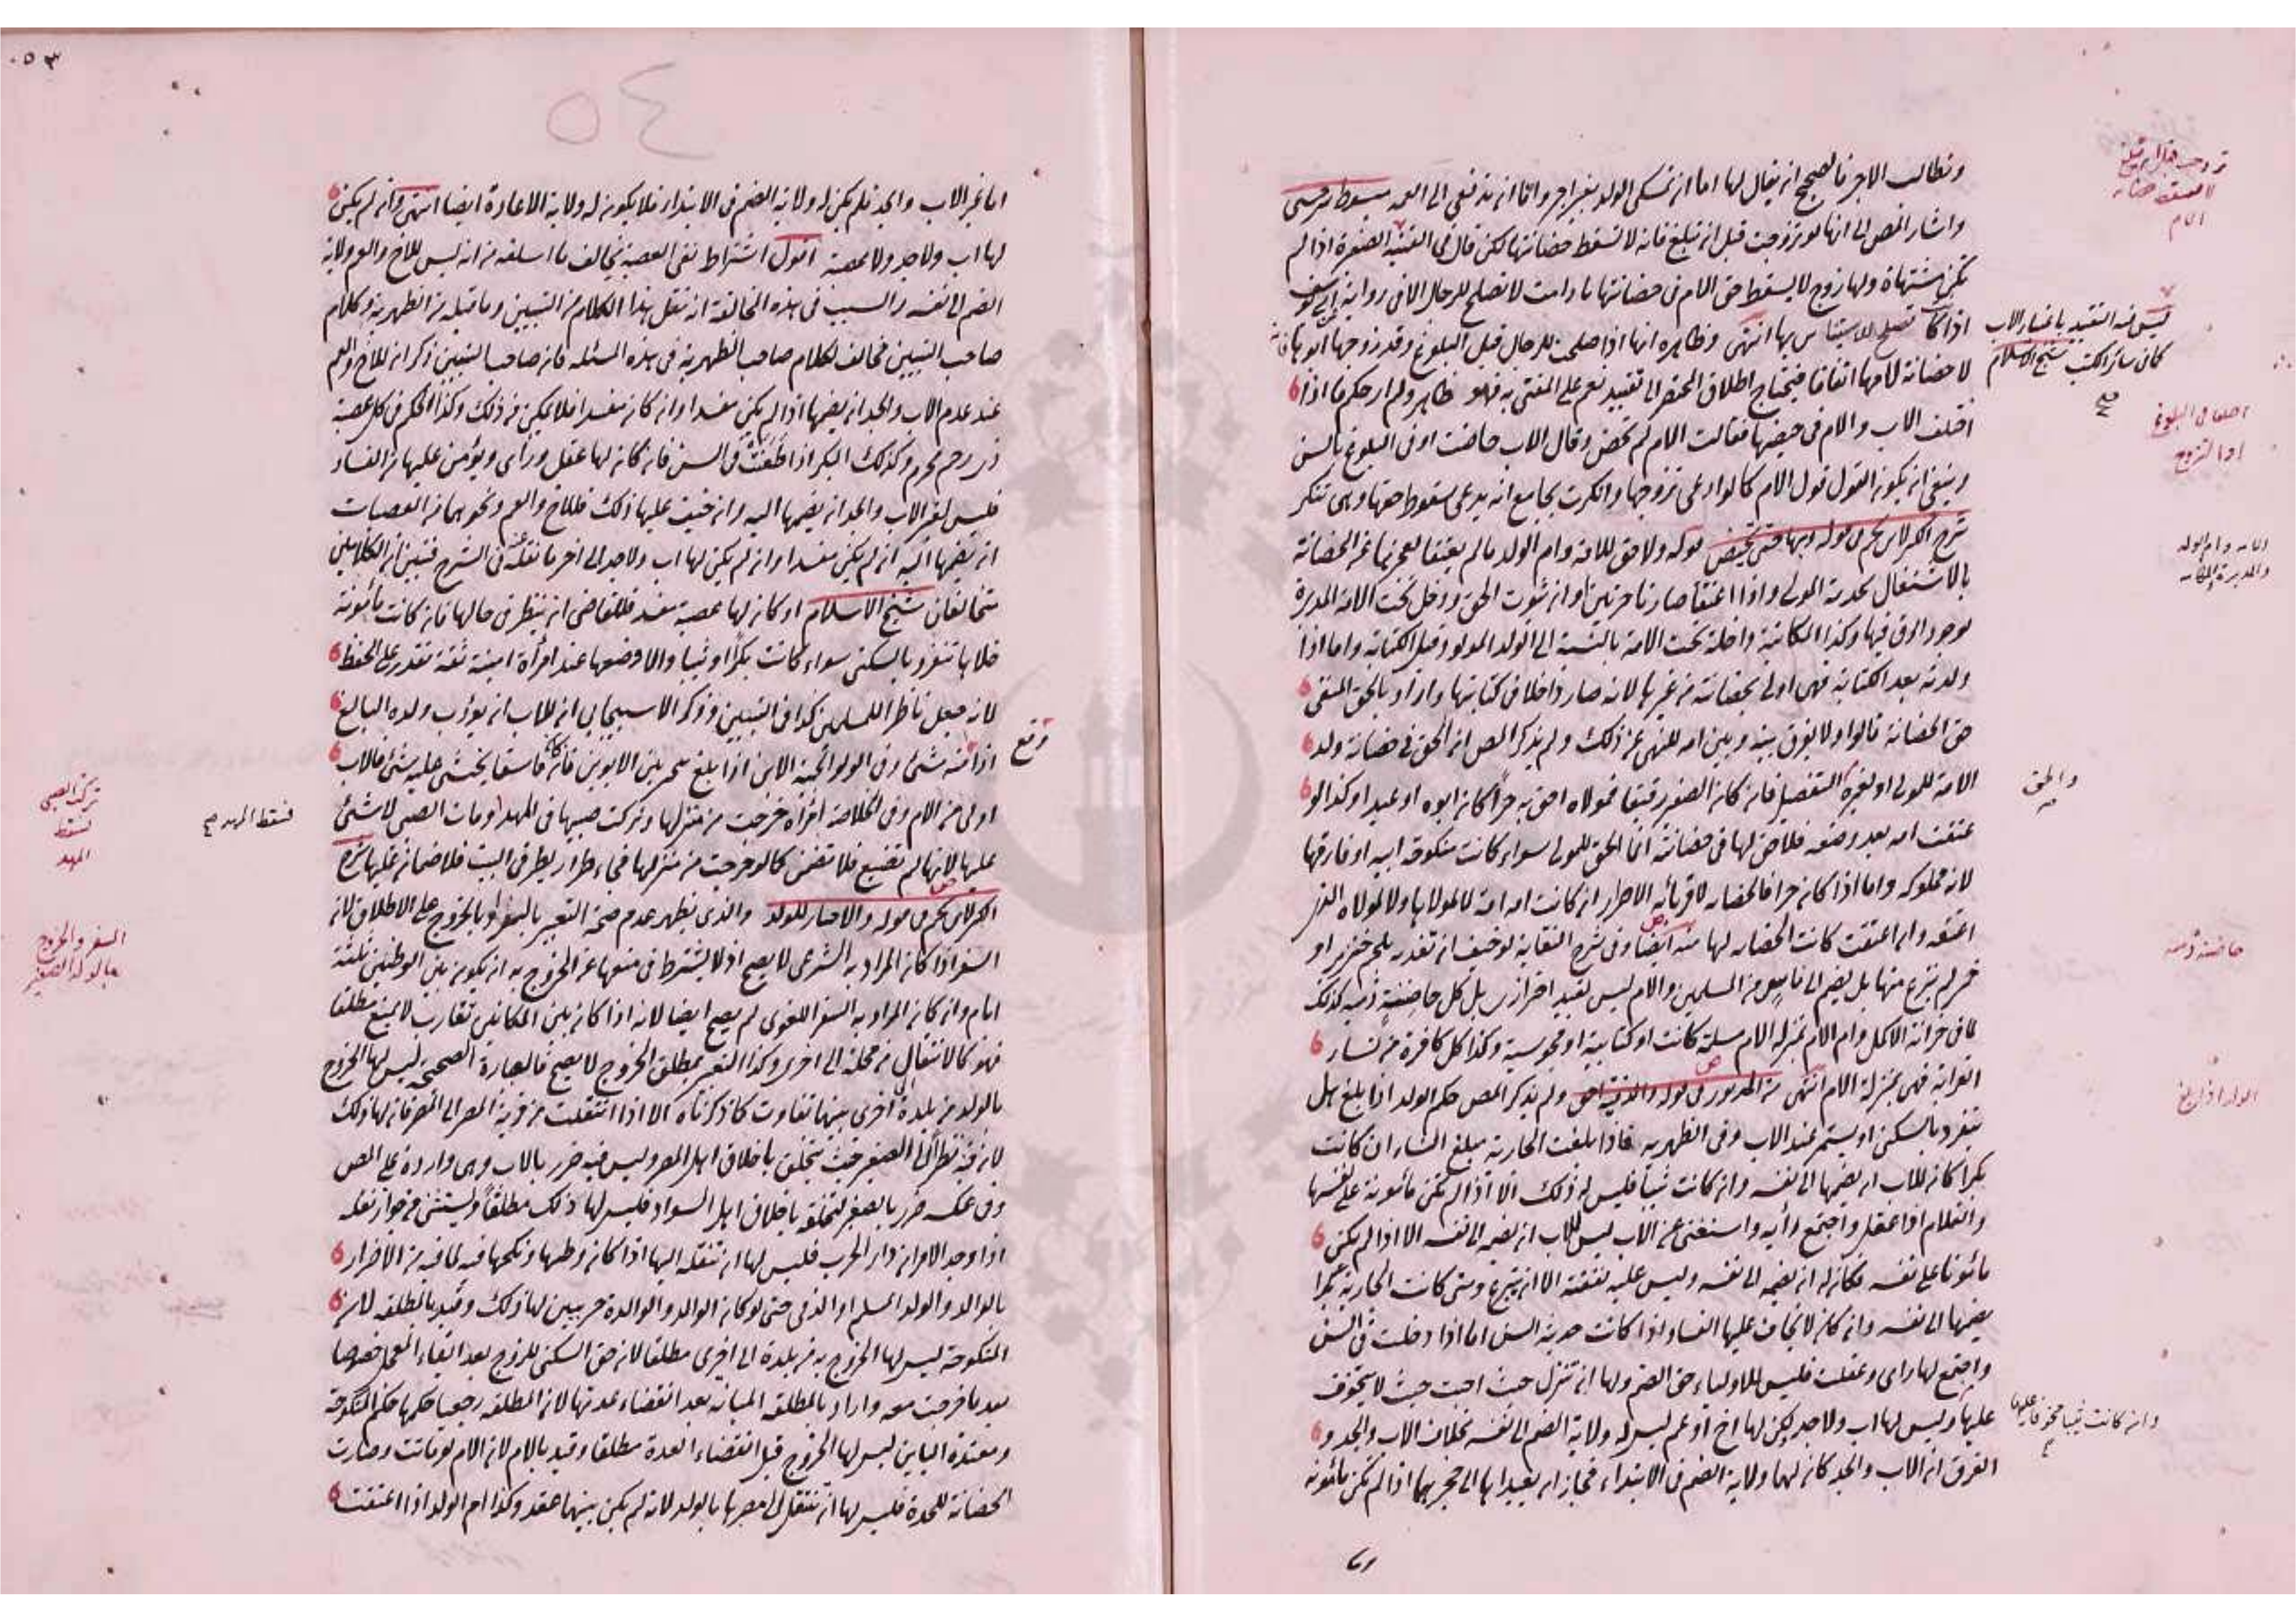 وتطالب الاجر فالصحيح انه يقال لها اما ان تمسكي الولد بغير اجر واما ان تدفعي الى العمة مبسوط سرخسي
واشار المص الى انها لو تزوجت قبل ان تبلغ فانه لا تسقط حضانتها لكن قال في القنية الصغيرة اذا لم
تكن مشتهاة ولها زوج لا يسقط حق الام في حضانتها ما دامت لا تصلح للرجال الا في رواية ابي يوسف
اذا كانت تصلح للاستيناس بها انتهى وظاهره انها اذا صلحت للرجال قبل البلوغ وقد زوجها ابوها فانه
لا حضانة لامها اتفاقا فيحتاج اطلاق المختصر الى تقييد نعم على المفتى به فهو ظاهر ولم ار حكم ما اذا
اختلف الاب والام في حيضها فقالت الام لم تحض وقال الاب حاضت او في البلوغ بالسن
وينبغي ان يكون القول قول الام كما لو ادعى تزوجها وانكرت بجامع انه يدعي سقوط حقها وهي تنكر
شرح الكنز لابن نجيم في قوله وبها حتى تحيض قوله ولا حق للامة وام الولد ما لم يعتقا لعجزهما عن الحضانة
بالاشتغال بخدمة المولى واذا اعتقا صارتا حرتين اوان ثبوت الحق ودخل تحت الامة المدبرة
لوجود الرق فيها وكذا المكاتبة داخلة تحت الامة بالنسبة الى الولد المولود قبل الكتابة واما اذا
ولدته بعد الكتابة فهي اولى بحضانته من غيرها لانه صار داخلا في كتابتها واراد بالحق المنفي
حق الحضانة قالوا ولا يفرق بينه وبين امه للنهي عن ذلك ولم يذكر المص ان الحق في حضانة ولد
الامة للمولى او لغيره التفصيل فان كان الصغير رقيقا فمولاه احق به حرا كان ابوه او عبدا وكذا لو
عتقت امه بعد وضعه فلا حق لها في حضانته انما الحق للمولى سواء كانت منكوحة ابيه او فارقها
لانه مملوكه واما اذا كان حرا فالحضانة لاقربائه الاحرار ان كانت امه امة لا لمولاها ولا لمولاه الذي
اعتقه وان اعتقت كانت الحضانة لها منه ايضا وفي شرح النقاية لو خيف ان تغذيه بلحم خنزير او
خمر لم ينزع منها بل يضم الى ناس من المسلمين والام ليس بقيد احترازي بل كل حاضنة ذمية كذلك
لما في خزانة الاكمل وام الام بمنزلة الام مسلمة كانت او كتابية او مجوسية وكذا كل كافرة من نساء
القرابة فهي بمنزلة الام انتهى من المزبور في قوله والذمية احق ولم يذكر المص حكم الولد اذا بلغ هل
ينفرد بالسكنى او يستمر عند الاب وفي الظهيرية فاذا بلغت الجارية مبلغ النساء ان كانت
بكرا كان للاب ان يضمها الى نفسه وان كانت ثيبا فليس له ذلك الا اذا لم تكن مأمونة على نفسها
والغلام اذا عقل واجتمع رأيه واستغنى عن الاب ليس للاب ان يضمه الى نفسه الا اذا لم يكن
مأمونا على نفسه فكان له ان يضمه الى نفسه وليس عليه نفقته الا ان يتبرع ومتى كانت الجارية بكرا
يضمها الى نفسه وان كان لا يخاف عليها الفساد اذا كانت حديثة السن اما اذا دخلت في السن
واجتمع لها رأي وعقلت فليس للاولياء حق الضم ولها ان تنزل حيث احبت حيث لا يتخوف
عليها وليس لها اب ولا جد لكن لها اخ او عم ليس له ولاية الضم الى نفسه بخلاف الاب والجد و
الفرق ان الاب والجد كان لهما ولاية الضم في الابتداء فجاز ان يعيداها الى حجرهما اذا لم تكن مأمونة
تزوجت
لا تسقط حضانة
الام
ليس فيه التقييد باعتبار الاب
كما في سائر الكتب شيخ الاسلام
اختلفا في البلوغ
او التزوج
الامة وام الولد
والمدبرة والمكاتبة
والحق
حاضنة ذمية
الولد اذا بلغ
وان كانت ثيبا مخوفا عليها
٥٣
٥٤
اما غير الاب والجد فلم يكن له ولاية الضم في الابتداء فلا يكون له ولاية الاعادة ايضا انتهى وان لم يكن
لها اب ولا جد ولا عصبة اقول اشتراط نفي العصبة يخالف ما اسلفه من انه ليس للاخ والعم ولاية
الضم الى نفسه والسبب في هذه المخالفة انه نقل هذا الكلام من التبيين وما قبله من الظهيرية وكلام
صاحب التبيين مخالف لكلام صاحب الظهيرية في هذه المسئلة فان صاحب التبيين ذكر ان للاخ والعم
عند عدم الاب والجد ان يضمها اذا لم يكن مفسدا وان كان مفسدا فلا يمكن من ذلك وكذا الحكم في كل عصبة
ذي رحم محرم وكذلك البكر اذا طعنت في السن فان كان لها عقل ورأي ويؤمن عليها من الفساد
فليس لغير الاب والجد ان يضمها اليه وان خيف عليها ذلك فللاخ والعم ونحوهما من العصبات
ان يضمها اليه ان لم يكن مفسدا وان لم يكن لها اب ولا جد الى اخر ما نقله في الشرح فتبين ان الكلامين
متخالفان شيخ الاسلام او كان لها عصبة مفسد فللقاضي ان ينظر في حالها فان كانت مأمونة
خلاها تنفرد بالسكنى سواء كانت بكرا او ثيبا والا وضعها عند امرأة امينة ثقة تقدر على الحفظ
لانه جعل ناظرا للمسلمين كذا في التبيين وذكر الاسبيجابي ان للاب ان يؤدب ولده البالغ
اذا وقع منه شئ وفي الولوالجية الابن اذا بلغ يخير بين الابوين فان كان فاسقا يخشى عليه شئ فالاب
اولى من الام وفي الخلاصة امرأة خرجت من منزلها وتركت صبيها في المهد ومات الصبي لا شئ
عليها لانها لم تضيع فلا تضمن كما لو خرجت من منزلها فجاء طرار يطر في البيت فلا ضمان عليها شرح
الكنز لابن نجيم في قوله والاخيار للولد والذي يظهر عدم صحة التعبير بالسفر او بالخروج على الاطلاق لان
السفر اذا كان المراد به الشرعي لا يصح اذ لا يشترط في منعها عن الخروج به ان يكون بين الوطنين ثلثة
ايام وان كان المراد به السفر اللغوي لم يصح ايضا لانه اذا كان بين المكانين تقارب لا يمنع مطلقا
فهو كالانتقال من محلة الى اخرى وكذا التعبير بمطلق الخروج لا يصح فالعبارة الصحيحة ليس لها الخروج
بالولد من بلدة الى اخرى بينهما تفاوت كما ذكرناه الا اذا انتقلت من قرية المصر الى المصر فان لها ذلك
لان فيه نظرا الى الصغير حيث يتخلق باخلاق اهل المصر وليس فيه ضرر بالاب وهي واردة على المص
وفي عكسه ضرر بالصغير لتخلقه باخلاق اهل السواد فليس لها ذلك مطلقا ويستثنى من جواز نقله
اذا وجد الامران دار الحرب فليس لها ان تنقله اليها اذا كان وطنها ونكحها فيه لما فيه من الاضرار
بالوالد والولد المسلم او الذمي حتى لو كان الوالد والوالدة حربيين لها ذلك وقيد بالمطلقة لان
المنكوحة ليس لها الخروج به من بلدة الى اخرى مطلقا لان حق السكنى للزوج بعد ايفاء المعجل خصوصا
بعد ما خرجت معه واراد بالمطلقة المبانة بعد انقضاء عدتها لان المطلقة رجعيا حكمها حكم المنكوحة
ومعتدة الباين ليس لها الخروج قبل انقضاء العدة مطلقا وقيد بالام لان الام لو ماتت وصارت
الحضانة للجدة فليس لها ان تنتقل الى مصرها بالولد لانه لم يكن بينهما عقد وكذا ام الولد اذا اعتقت
تركت الصبي
فسقط
المهد
فسقط المهد صح
السفر والخروج
بالولد الصغير